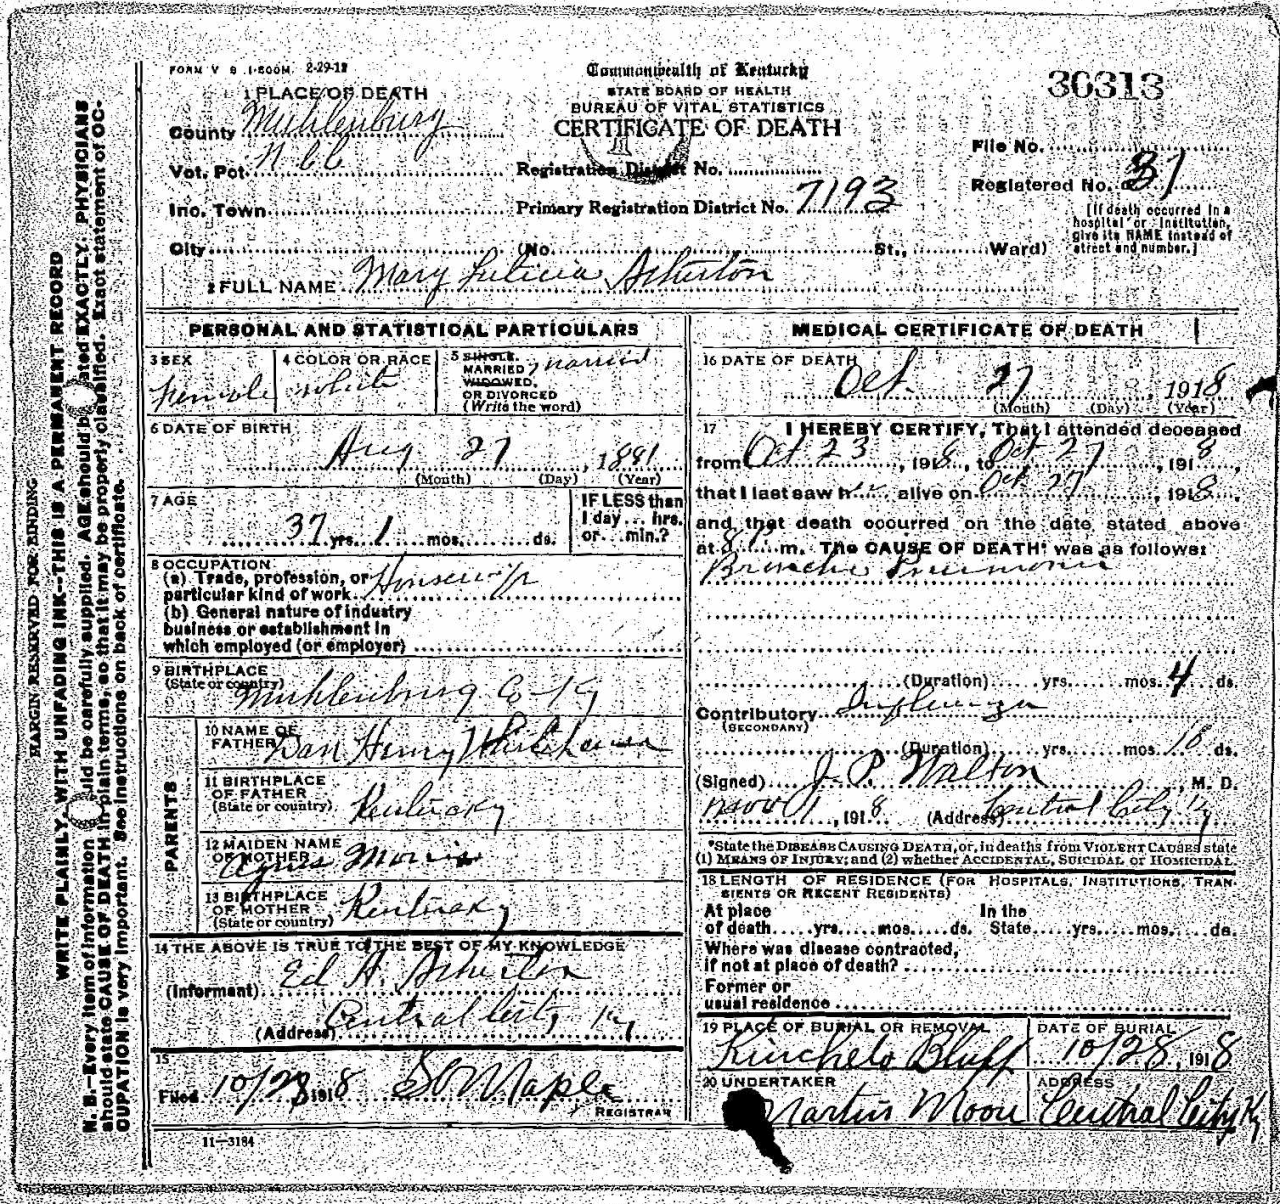 FORM V S 1-500M. 2-29-12
Commonwealth of Kentucky
STATE BOARD OF HEALTH
BUREAU OF VITAL STATISTICS
CERTIFICATE OF DEATH
36313
1 PLACE OF DEATH
County Muhlenburg
Vot. Pct. N CC
Inc. Town
City (No. St., Ward)
Registration District No.
Primary Registration District No. 7193
File No.
Registered No. 31
[If death occurred in a
hospital or institution,
give its NAME instead of
street and number.]
2 FULL NAME Mary Luticia Atherton
PERSONAL AND STATISTICAL PARTICULARS
3 SEX
Female
4 COLOR OR RACE
white
5 SINGLE,
MARRIED
WIDOWED,
OR DIVORCED
(Write the word)
married
6 DATE OF BIRTH
Aug 27, 1881
(Month) (Day) (Year)
7 AGE
37 yrs. 1 mos. ds.
IF LESS than
1 day ... hrs.
or ... min.?
8 OCCUPATION
(a) Trade, profession, or
particular kind of work Housewife
(b) General nature of industry
business or establishment in
which employed (or employer)
9 BIRTHPLACE
(State or country)
Muhlenburg Co - Ky
PARENTS
10 NAME OF
FATHER Dan Henry Whitehouse
11 BIRTHPLACE
OF FATHER
(State or country) Kentucky
12 MAIDEN NAME
OF MOTHER Agnes Morris
13 BIRTHPLACE
OF MOTHER
(State or country) Kentucky
14 THE ABOVE IS TRUE TO THE BEST OF MY KNOWLEDGE
(Informant) Ed H. Atherton
(Address) Central City Ky
15
Filed 10/28 1918 S O Maple
REGISTRAR
11-3184
MEDICAL CERTIFICATE OF DEATH
16 DATE OF DEATH
Oct. 27, 1918
(Month) (Day) (Year)
17 I HEREBY CERTIFY, That I attended deceased
from Oct 23, 1918, to Oct 27, 1918,
that I last saw h alive on Oct 27, 1918,
and that death occurred on the date stated above
at 8 P m. The CAUSE OF DEATH* was as follows:
Broncho Pneumonia
(Duration) yrs. mos. 4 ds.
Contributory Influenza
(SECONDARY)
(Duration) yrs. mos. 18 ds.
(Signed) J. P. Walton, M. D.
Nov 1, 1918 (Address) Central City Ky
*State the DISEASE CAUSING DEATH, or, in deaths from VIOLENT CAUSES state
(1) MEANS OF INJURY; and (2) whether ACCIDENTAL, SUICIDAL or HOMICIDAL.
18 LENGTH OF RESIDENCE (FOR HOSPITALS, INSTITUTIONS, TRAN-
SIENTS OR RECENT RESIDENTS)
At place In the
of death yrs. mos. ds. State yrs. mos. ds.
Where was disease contracted,
if not at place of death?
Former or
usual residence
19 PLACE OF BURIAL OR REMOVAL
Kinchelo Bluff
DATE OF BURIAL
10/28, 1918
20 UNDERTAKER
Martin Moore
ADDRESS
Central City Ky
MARGIN RESERVED FOR BINDING
WRITE PLAINLY, WITH UNFADING INK--THIS IS A PERMANENT RECORD
N. B.--Every item of information should be carefully supplied. AGE should be stated EXACTLY. PHYSICIANS
should state CAUSE OF DEATH in plain terms, so that it may be properly classified. Exact statement of OC-
CUPATION is very important. See instructions on back of certificate.